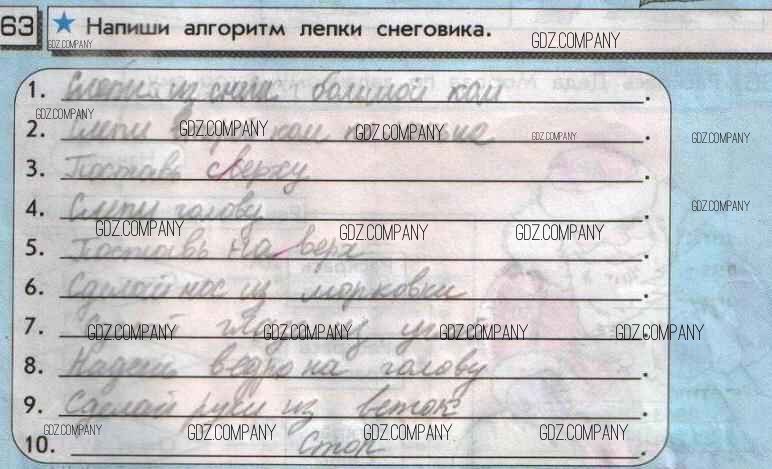 63 ★ Напиши алгоритм лепки снеговика.
GDZ.COMPANY GDZ.COMPANY
1. Слепи из снега большой ком.
GDZ.COMPANY
2. Слепи ком GDZ.COMPANY GDZ.COMPANY GDZ.COMPANY GDZ.COMPANY
3. Поставь сверху.
4. Слепи голову.
GDZ.COMPANY
GDZ.COMPANY GDZ.COMPANY GDZ.COMPANY
5. Поставь на верх.
6. Сделай нос из морковки.
7. глаза из GDZ.COMPANY GDZ.COMPANY GDZ.COMPANY GDZ.COMPANY
8. Надень ведро на голову.
9. Сделай руки из веток.
GDZ.COMPANY GDZ.COMPANY GDZ.COMPANY GDZ.COMPANY
10. Стоп.